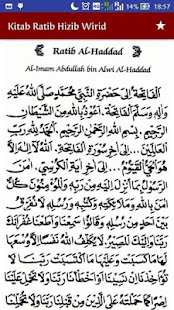 18:57
Kitab Ratib Hizib Wirid
Ratib Al-Haddad
Al-Imam Abdullah bin Alwi Al-Haddad
اَلْفَاتِحَةَ إِلَى حَضْرَةِ النَّبِيِّ مُحَمَّدٍ صَلَّى اللهُ عَلَيْهِ
وَآلِهِ وَسَلَّمَ، الْفَاتِحَةَ... أَعُوْذُ بِاللهِ مِنَ الشَّيْطَانِ
الرَّجِيْمِ، بِسْمِ اللهِ الرَّحْمٰنِ الرَّحِيْمِ، اَلْحَمْدُ لِلّٰهِ
... إِلَى آخِرِ سُوْرَةِ
آمَنَ الرَّسُوْلُ بِمَا أُنْزِلَ إِلَيْهِ مِنْ رَبِّهِ وَالْمُؤْمِنُوْنَ كُلٌّ
آمَنَ بِاللهِ وَمَلَائِكَتِهِ وَكُتُبِهِ وَرُسُلِهِ لَا نُفَرِّقُ
بَيْنَ أَحَدٍ مِنْ رُسُلِهِ وَقَالُوْا سَمِعْنَا وَأَطَعْنَا غُفْرَانَكَ
رَبَّنَا وَإِلَيْكَ الْمَصِيْرُ. لَا يُكَلِّفُ اللهُ نَفْسًا إِلَّا وُسْعَهَا
لَهَا مَا كَسَبَتْ وَعَلَيْهَا مَا اكْتَسَبَتْ رَبَّنَا لَا
تُؤَاخِذْنَا إِنْ نَسِيْنَا أَوْ أَخْطَأْنَا رَبَّنَا وَلَا تَحْمِلْ عَلَيْنَا
إِصْرًا كَمَا حَمَلْتَهُ عَلَى الَّذِيْنَ مِنْ قَبْلِنَا رَبَّنَا وَلَا